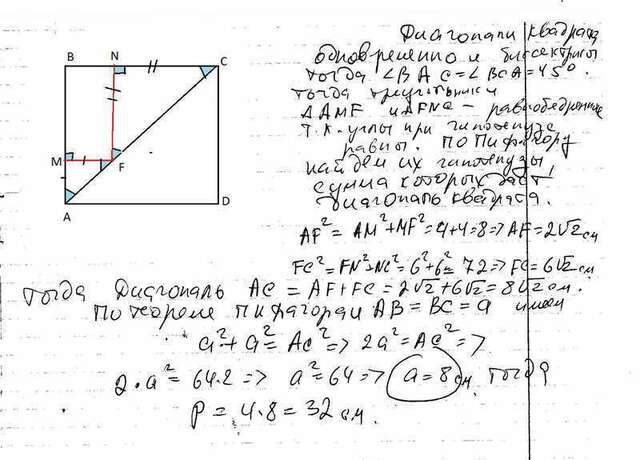 B N C
M F
A D
Диагонали квадрата
одновременно и биссектрисы
тогда ∠BAC=∠BCA=45°.
тогда треугольники
ΔAMF и ΔFNC – равнобедренные
т.к. углы при гипотенузе
равны. По Пифагору
найдем их гипотенузы,
сумма которых даст
диагональ квадрата.
AF²=AM²+MF²=4+4=8=>AF=2√2см
FC²=FN²+NC²=6²+6²=72=>FC=6√2см
тогда Диагональ AC=AF+FC=2√2+6√2=8√2см.
По теореме Пифагора AB=BC=a имеем
a²+a²=AC²=>2a²=AC²=>
2·a²=64·2=>a²=64=>a=8см, тогда
P=4·8=32см.